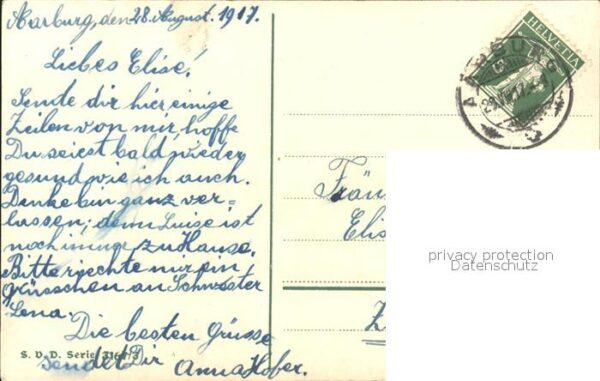 Aarburg, den 28. August. 1917.
Liebes Elise!
Sende dir hier einige
Zeilen von mir, hoffe
Du seiest bald wieder
gesund wie ich auch.
Denke bin ganz ver=
lassen; denn Luise ist
noch immer zu Hause.
Bitte richte mir ein
Grüsschen an Schwester
Lena.
Die besten Grüsse
sendet Dir Anna Hofer.
S. V. D. Serie 3164/3
HELVETIA
AARBURG
Fräu
Elis
Z
privacy protection
Datenschutz